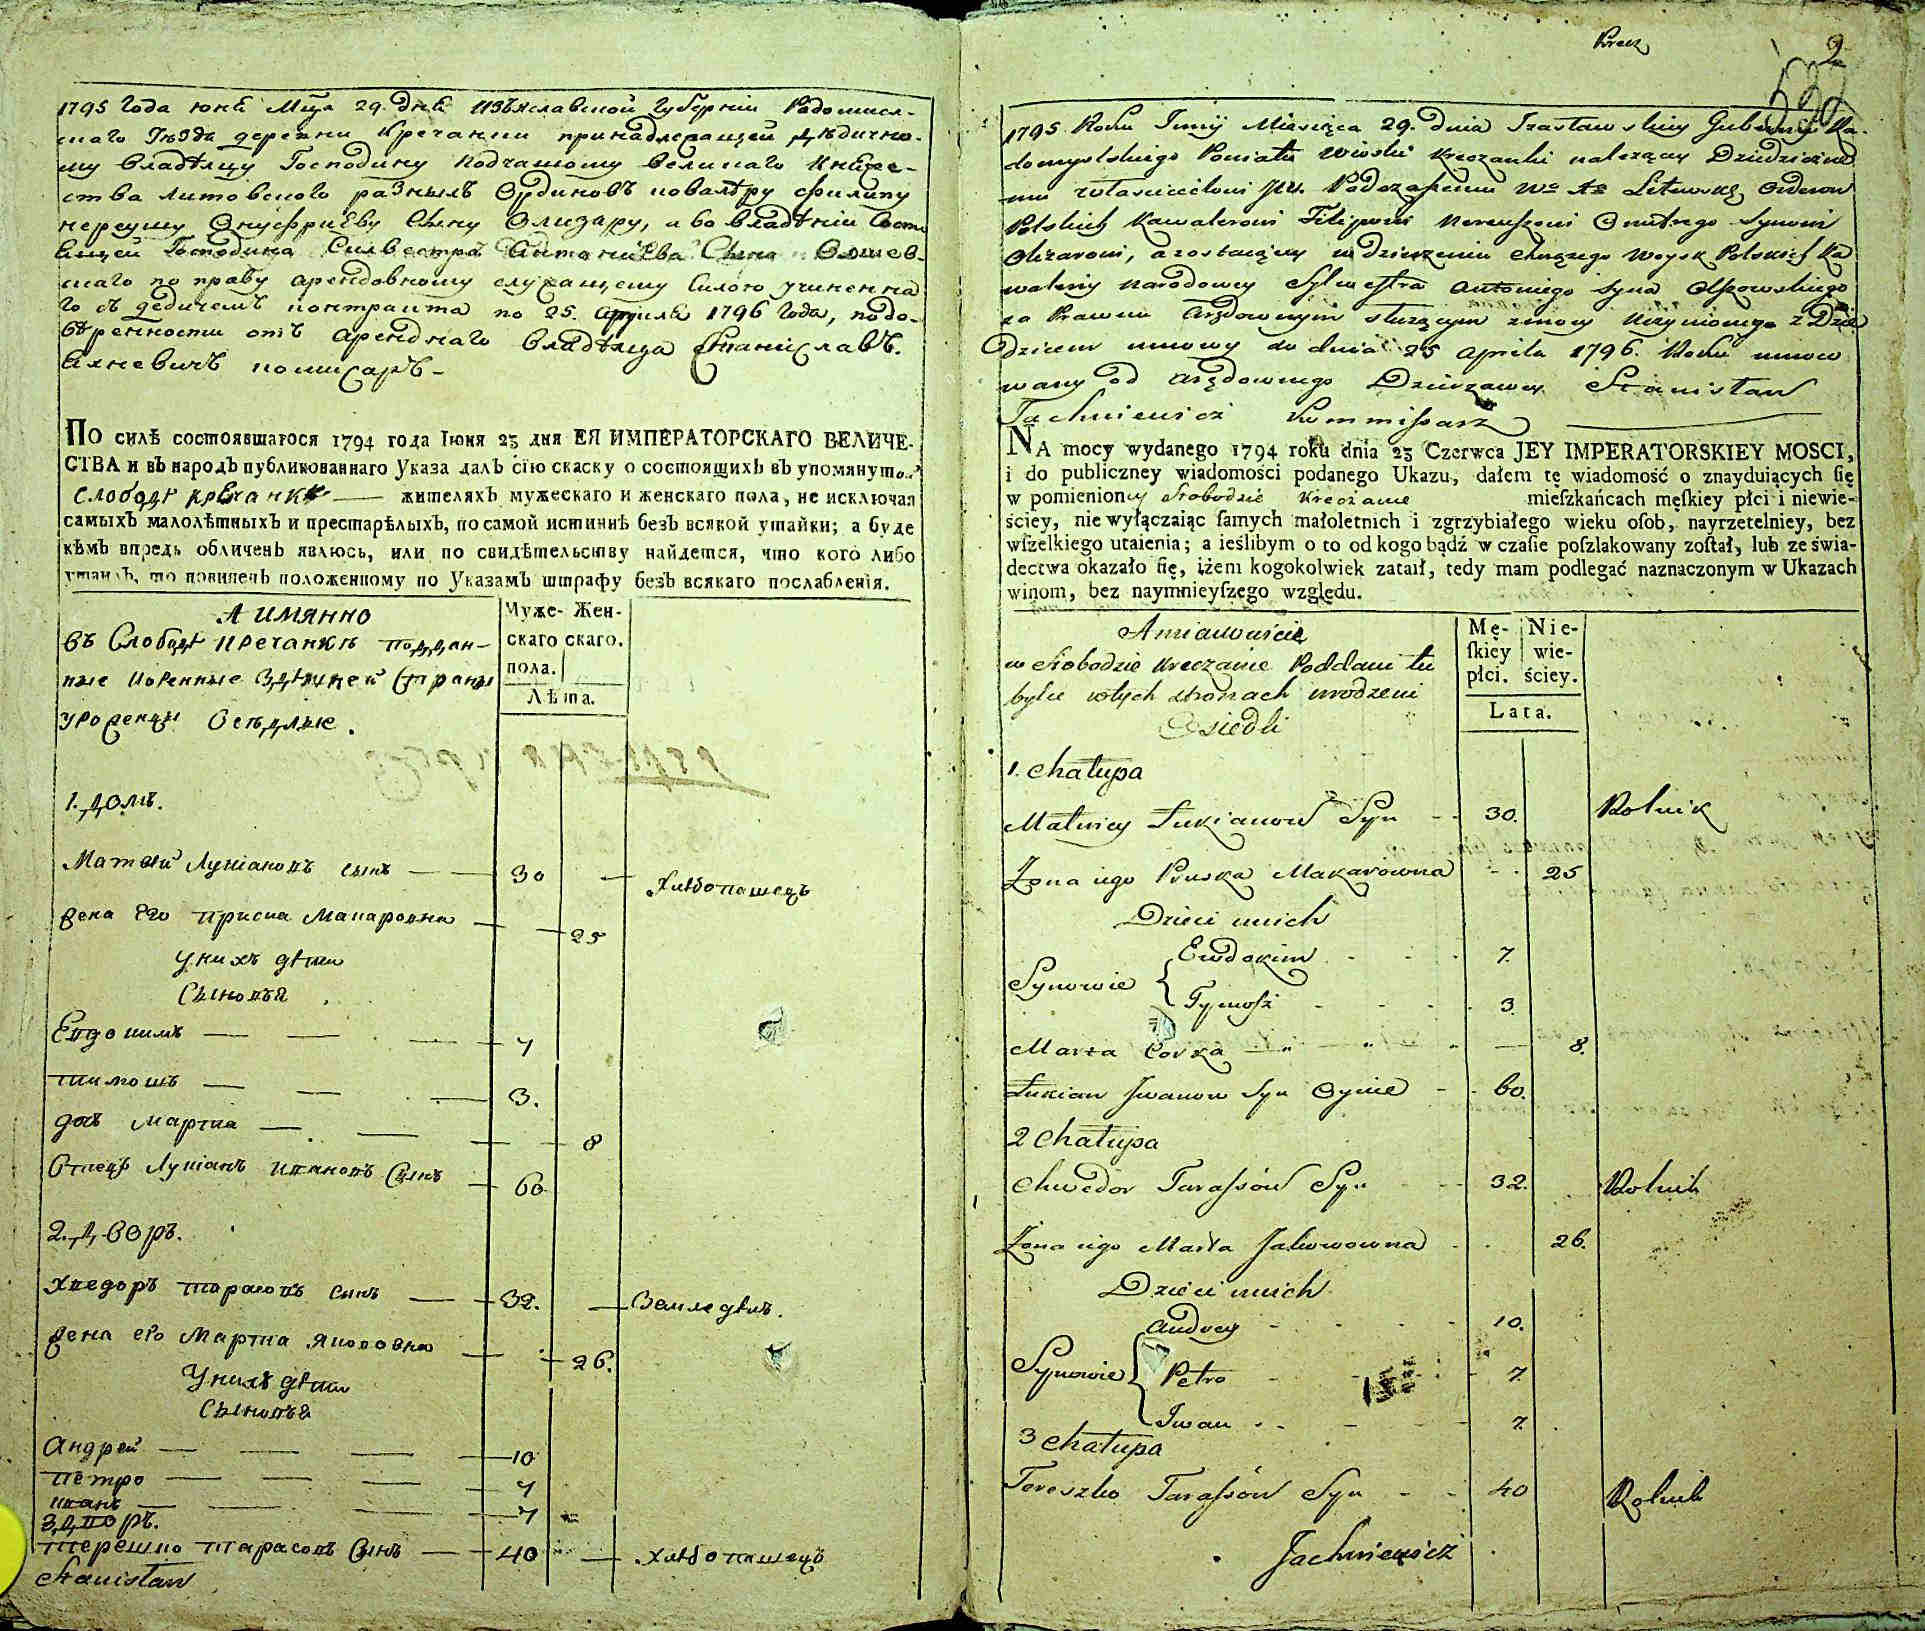 1795 года юнӣ Мца 29. днӣ Изъяславской Губерніи Радомисл-
скаго деревни Кречанки принадлежащей дѣдично-
му владѣлцу Господину Подчашому великаго Княже-
ства литовского разныхъ Ординовъ ковалѣру Филипу
Нереушу Онуфриеву Сыну Олизару, а во владѣніи состо
ящей Господина Силвестра Антониева Сына
скаго по праву арендовному служащему силою учиненна
го съ дедичемъ контракта по 25. априля 1796 года,
отъ Аренднаго владѣлца Станиславъ
Яхневичъ комисаръ-
По силѣ состоявшагося 1794 года Iюня 23 дня ЕЯ ИМПЕРАТОРСКАГО ВЕЛИЧЕ-
СТВА и въ народъ публикованнаго Указа далъ сїю скаску о состоящихъ въ упомянутой
Слободѣ Кречанкѣ — жителяхъ мужескаго и женскаго пола, не исключая
самыхъ малолѣтныхъ и престарѣлыхъ, по самой истиннѣ безъ всякой утайки; а буде
кѣмъ впредь обличенъ явлюсь, или по свидѣтельству найдется, что кого либо
утаилъ, то повиненъ положенному по Указамъ штрафу безъ всякаго послабленія.
А имянно
въ Слободѣ Кречанкѣ поддан-
ные коренные здѣшней страны
уроженцы Оседлые.
Муже- Жен-
скаго скаго.
пола.
Лѣта.
1. домъ.
Матвей Лукіановъ сынъ — 30 — хлѣбопашецъ
жена Его Приска Макаровна — 25
у нихъ дѣти
Сыновья
Евдокимъ — 7
Тимошъ — 3.
дочь Марта — 8
Отецъ Лукіанъ Ивановъ Сынъ — 60
2. дворъ.
Хведоръ Тарасовъ сынъ — 32. — Земледѣлъ.
жена его Марта Якововна — 26.
У нихъ дѣти
Сыновья
Андрей — 10
Петро — 7
Иванъ — 7
3. дворъ.
Терешко Тарасовъ Сынъ — 40 — хлѣбопашецъ
Stanisław
2
1795 Roku Junij Miesiąca 29. dnia Izasławskiey Gubernii Ra-
domyslskiego Powiatu wioski Kreczanki należącey Dziedziczne
mu własciciełowi JW. Podczaszemu Wo Xo Litewskę Orderow
Polskich Kawalerowi Filipowi Nereuszowi Onufrego Synowi
Olizarowi, a zostaiącey w dzierzeniu Woysk Polskich Ka
waleryi Narodowey Sylwestra Antoniego syna Olszowskiego
za Prawem Arędownym służącym z mocy uczynionego z Dzie
dzicem umowy do dnia 25 Aprila 1796. Roku
wany od Arędownego Dzierzawcy Stanisław
Jachniewicz Kommissarz
NA mocy wydanego 1794 roku dnia 23 Czerwca JEY IMPERATORSKIEY MOSCI,
i do publiczney wiadomości podanego Ukazu, dałem tę wiadomość o znayduiących ſię
w pomienioney Słobodzie Kreczance mieſzkańcach męſkiey płci i niewie-
ściey, nie wyłączaiąc ſamych małoletnich i zgrzybiałego wieku oſob, nayrzetelniey, bez
wſzelkiego utaienia; a ieślibym o to od kogo bądź w czaſie poſzlakowany zoſtał, lub ze świa-
dectwa okazało ſię, iżem kogokolwiek zataił, tedy mam podlegać naznaczonym w Ukazach
winom, bez naymnieyſzego względu.
A mianowicie
w Słobodzie Kreczance Poddani tu
bylce w tych stronach urodzeni
Osiedli
Mę- Nie-
ſkiey wie-
płci. ściey.
Lata.
1. Chałupa
Matwiey Łukianow Syn - - 30. Rolnik
Żona iego Pruska Makarowna - - 25
Dzieci u nich
Synowie
Ewdokim - - - 7.
Tymosz - - - 3.
Marta Corka — 8.
Łukian Iwanow Syn Oyciec - - 60.
2 Chałupa
Chwedor Tarassów Syn - - 32. Rolnik
Żona iego Marta Jakowowna - - 26.
Dzieci u nich
Synowie
Andrey - - - 10.
Petro - - - 7
Iwan - - - 7.
3 Chałupa
Tereszko Tarassów Syn - - 40 Rolnik
Jachniewicz